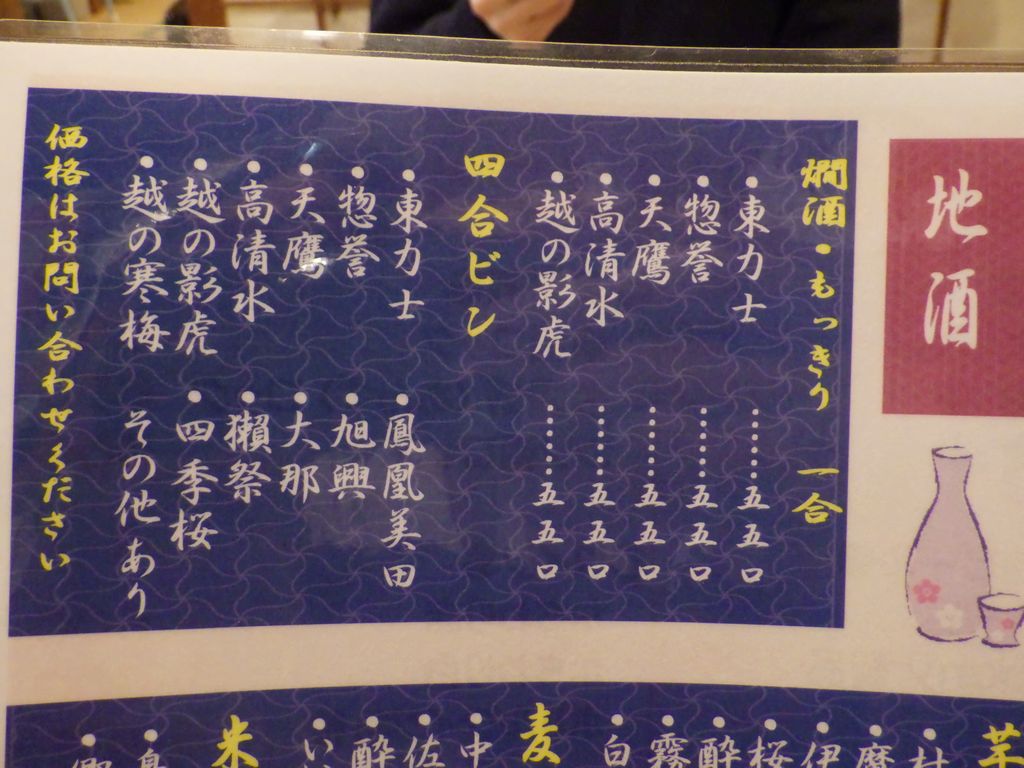 地酒
燗酒・もっきり 一合
•東力士……五五〇
•惣誉……五五〇
•天鷹……五五〇
•高清水……五五〇
•越の影虎……五五〇
四合ビン
•東力士 •鳳凰美田
•惣誉 •旭興
•天鷹 •大那
•高清水 •獺祭
•越の影虎 •四季桜
•越の寒梅 その他あり
価格はお問い合わせください
芋
•伊
•桜
•酔
•霧
•白
麦
•中
•佐
•酔
•い
米